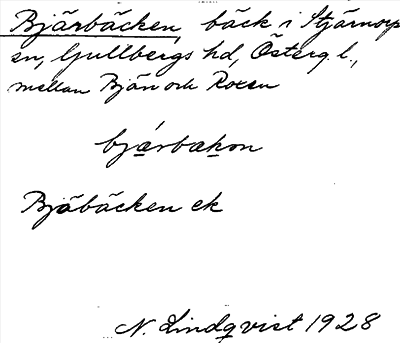 Bjärbäcken, bäck i Stjärnorp
sn, Gullbergs hd, Österg. l.,
mellan Bjän och Roxen
bjä́rbäkon
Bjäbäcken ek
N. Lindqvist 1928